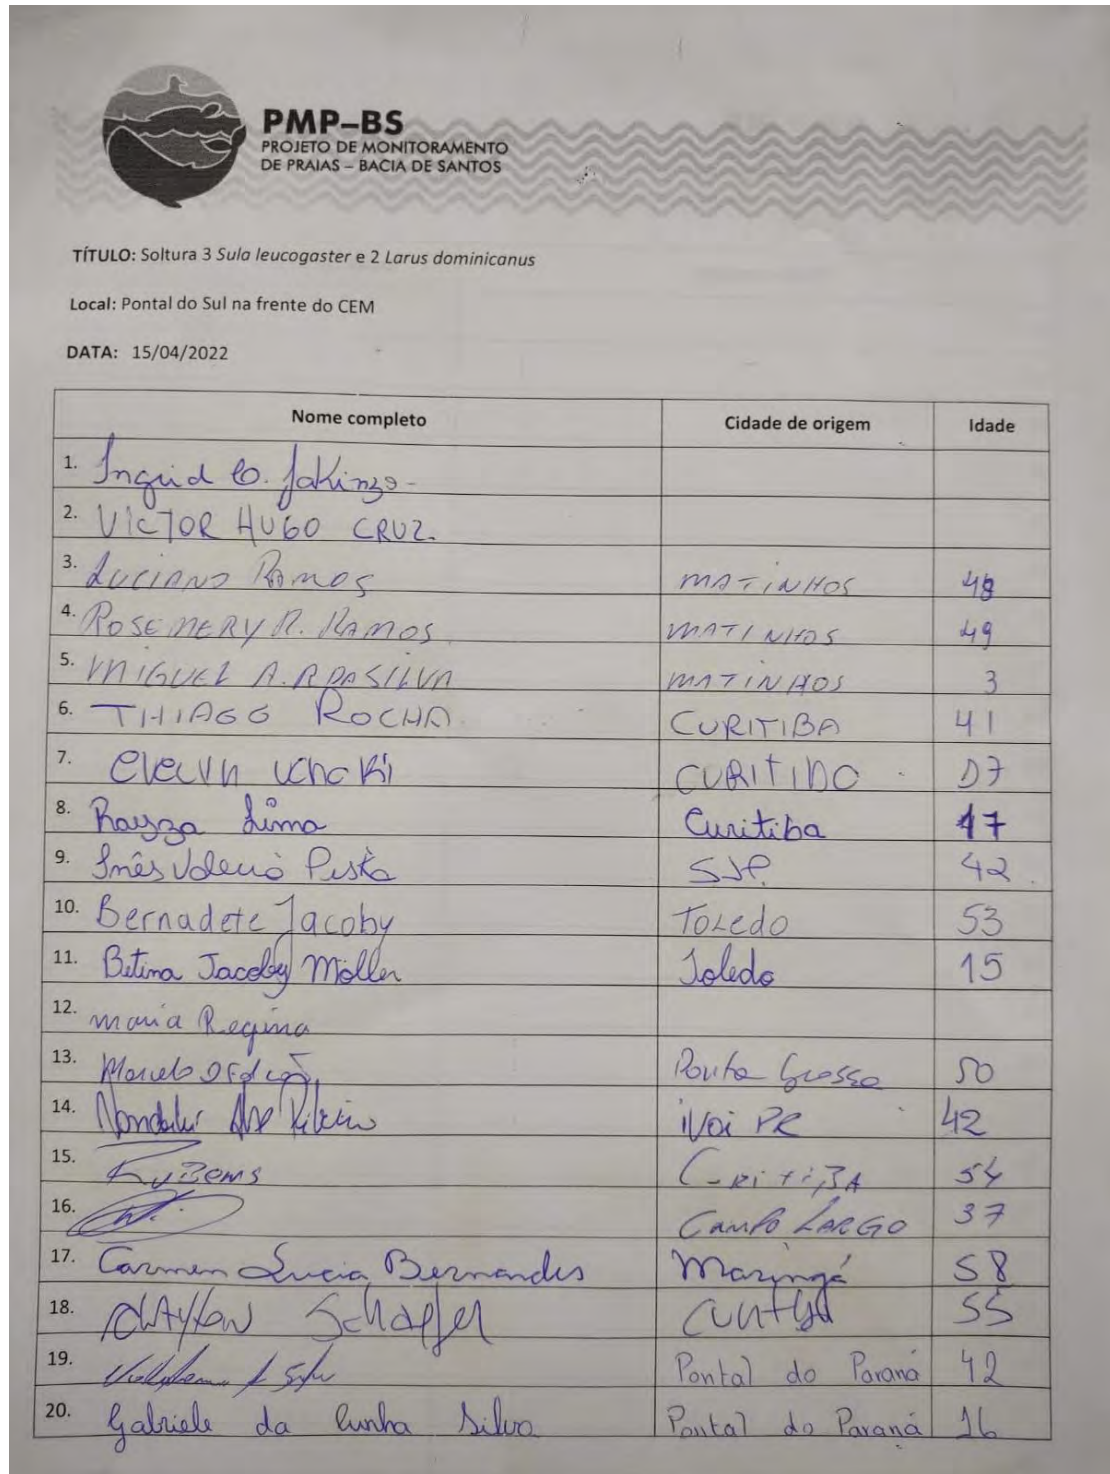 PMP–BS
PROJETO DE MONITORAMENTO
DE PRAIAS – BACIA DE SANTOS
TÍTULO: Soltura 3 Sula leucogaster e 2 Larus dominicanus
Local: Pontal do Sul na frente do CEM
DATA: 15/04/2022
Nome completo Cidade de origem Idade
1. Ingrid
2. VICTOR HUGO CRUZ.
3. LUCIANO RAMOS MATINHOS 48
4. ROSEMERY R. RAMOS MATINHOS 49
5. MIGUEL A. R DA SILVA MATINHOS 3
6. THIAGO ROCHA CURITIBA 41
7. evelyn
8. Rayza Lima Curitiba 17
9. Inês SJP. 42
10. Bernadete Jacoby Toledo 53
11. Betina Jacoby Möller Toledo 15
12. maria Regina
13. Marcelo Ponta Grossa 50
14. ivai PR 42
15. RuBENS 54
16. CAMPO LARGO 37
17. Carmen Lucia Bernardes Maringá 58
18. Schaffer 55
19. Pontal do Paraná 42
20. Gabriele da Cunha Silva Pontal do Paraná 16